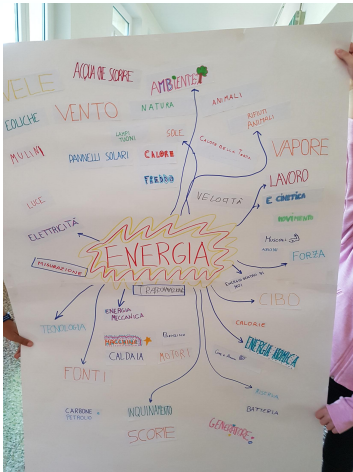 VELE
ACQUA CHE SCORRE
AMBIENTE
EOLICHE
VENTO
NATURA
ANIMALI
RIFIUTI
ANIMALI
MULINI
PANNELLI SOLARI
SOLE
CALORE
CALORE DELLA TERRA
VAPORE
FREDDO
LAVORO
LUCE
VELOCITÀ
E CINETICA
MOVIMENTO
ELETTRICITÀ
ENERGIA
FORZA
MISURAZIONE
TRASFORMAZIONE
CIBO
ENERGIA
MECCANICA
CALORIE
TECNOLOGIA
CALDAIA
MOTORI
ENERGIE ATOMICA
FONTI
CARBONE
PETROLIO
INQUINAMENTO
BATTERIA
SCORIE
GENERATORE